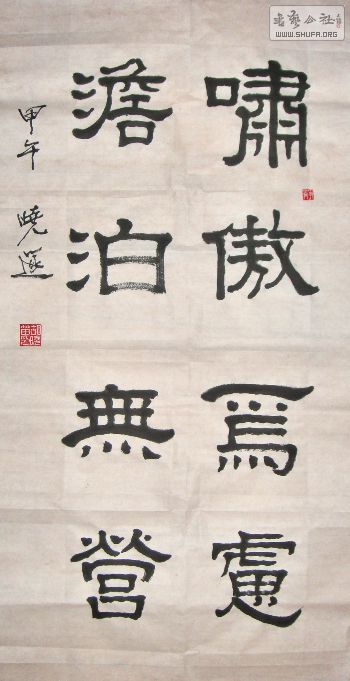 嘯傲爲慮
澹泊無營
甲午 曉
書藝公社
WWW.SHUFA.ORG